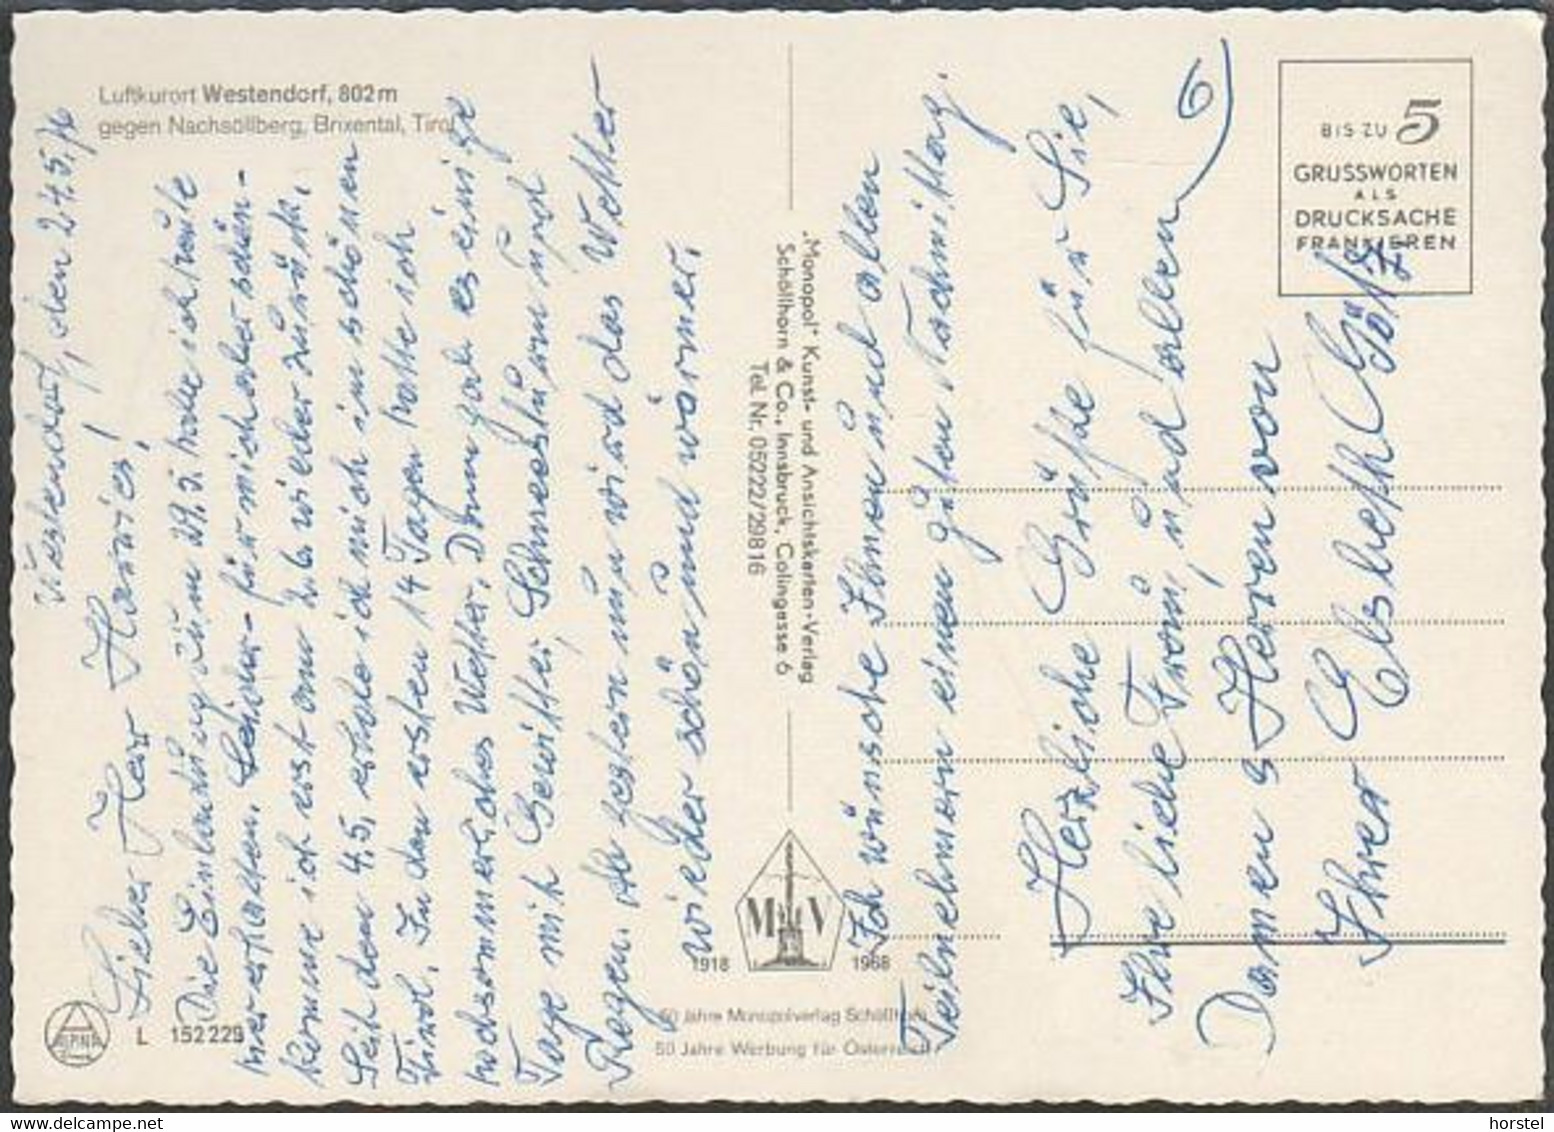 Luftkurort Westendorf, 802m
gegen Nachsöllberg, Brixental, Tirol
Westendorf, den 24.5.76
Lieber Herr Harries!
Die Einladung zum 29.5. habe ich heute
hier erhalten. Leider – für mich aber schön –
komme ich erst am 2.6. wieder zurück.
Seit dem 4.5. erhole ich mich im schönen
Tirol. In den ersten 14 Tagen hatte ich
hochsommerliches Wetter. Dann gab es einige
Tage mit Gewitter, Schneesturm und
Regen. Ab gestern nun wird das Wetter
wieder schön und wärmer.
"Monopol" Kunst- und Ansichtskarten-Verlag
Schöllhorn & Co., Innsbruck, Colingasse 6
Tel. Nr. 05222/29816
M V
1918 1968
50 Jahre Monopolverlag Schöllhorn
50 Jahre Werbung für Österreich
ALPINA
L 152 229
Ich wünsche Ihnen und allen
Teilnehmern einen guten Nachmittag.
Herzliche Grüße für Sie,
Ihre liebe Frau, und allen
Damen u. Herren von
Ihrer Elsbeth
6
BIS ZU 5
GRUSSWORTEN
ALS
DRUCKSACHE
FRANKIEREN
horstel
www.delcampe.net